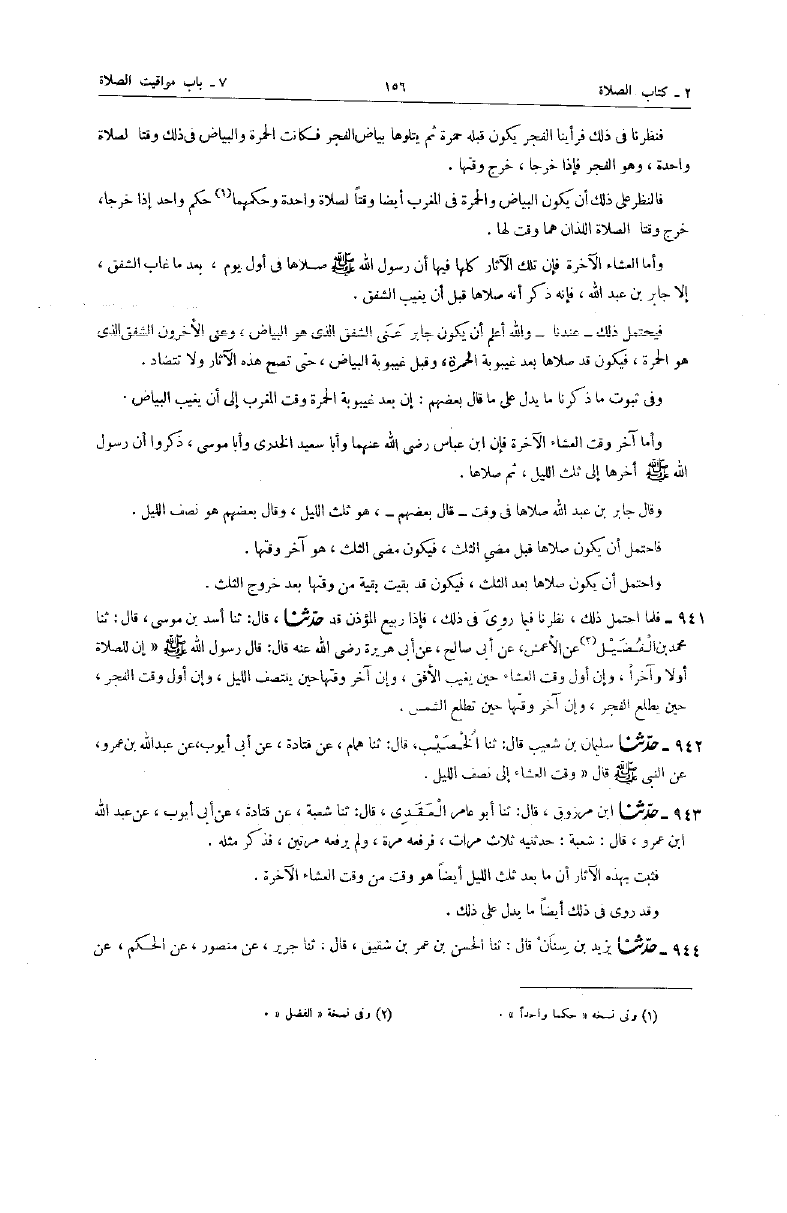 ٢ ـ كتاب الصلاة ١٥٦ ٧ ـ باب مواقيت الصلاة
فنظرنا فى ذلك فرأينا الفجر يكون قبله حمرة ثم يتلوها بياض الفجر فكانت الحمرة والبياض فى ذلك وقتا لصلاة
واحدة ، وهو الفجر فإذا خرجا ، خرج وقتها .
فالنظر على ذلك أن يكون البياض والحمرة فى المغرب أيضا وقتاً لصلاة واحدة وحكمهما(١) حكم واحد إذا خرجا،
خرج وقتا الصلاة اللذان هما وقت لها .
وأما العشاء الآخرة فإن تلك الآثار كلها فيها أن رسول الله ﷺ صلاها فى أول يوم ، بعد ما غاب الشفق ،
إلا جابر بن عبد الله ، فإنه ذكر أنه صلاها قبل أن يغيب الشفق .
فيحتمل ذلك ـ عندنا ـ والله أعلم أن يكون جابر عَنَى الشفق الذى هو البياض ، وعنى الآخرون الشفق الذى
هو الحمرة ، فيكون قد صلاها بعد غيبوبة الحمرة، وقبل غيبوبة البياض ، حتى تصح هذه الآثار ولا تتضاد .
وفى ثبوت ما ذكرنا ما يدل على ما قال بعضهم : إن بعد غيبوبة الحمرة وقت المغرب إلى أن يغيب البياض .
وأما آخر وقت العشاء الآخرة فإن ابن عباس رضى الله عنهما وأبا سعيد الخدرى وأبا موسى ، ذكروا أن رسول
الله ﷺ أخرها إلى ثلث الليل ، ثم صلاها .
وقال جابر بن عبد الله صلاها فى وقت ـ قال بعضهم ـ ، هو ثلث الليل ، وقال بعضهم هو نصف الليل .
فاحتمل أن يكون صلاها قبل مضي الثلث ، فيكون مضى الثلث ، هو آخر وقتها .
واحتمل أن يكون صلاها بعد الثلث ، فيكون قد بقيت بقية من وقتها بعد خروج الثلث .
٩٤١ ـ فلما احتمل ذلك ، نظرنا فيما روى فى ذلك ، فإذا ربيع المؤذن قد حدثنا ، قال: ثنا أسد بن موسى ، قال: ثنا
محمد بن الْفُضَيْل(٢) عن الأعمش، عن أبى صالح ، عن أبى هريرة رضى الله عنه قال: قال رسول الله ﷺ « إن للصلاة
أولا وآخراً ، وإن أول وقت العشاء حين يغيب الأفق ، وإن آخر وقتها حين ينتصف الليل ، وإن أول وقت الفجر ،
حين يطلع الفجر ، وإن آخر وقتها حين تطلع الشمس .
٩٤٢ ـ حدثنا سليمان بن شعيب قال: ثنا الْخَصِيْب، قال: ثنا همام ، عن قتادة ، عن أبى أيوب، عن عبدالله بن عمرو،
عن النبى ﷺ قال « وقت العشاء إلى نصف الليل .
٩٤٣ ـ حدثنا ابن مرزوق ، قال: ثنا أبو عامر الْعَقَدِى ، قال: ثنا شعبة ، عن قتادة ، عن أبى أيوب ، عن عبد الله
ابن عمرو ، قال : شعبة : حدثنيه ثلاث مرات ، فرفعه مرة ، ولم يرفعه مرتين ، فذكر مثله .
فثبت بهذه الآثار أن ما بعد ثلث الليل أيضاً هو وقت من وقت العشاء الآخرة .
وقد روى فى ذلك أيضاً ما يدل على ذلك .
٩٤٤ ـ حدثنا يزيد بن سِنَان قال : ثنا الحسن بن عمر بن شقيق ، قال : ثنا جرير ، عن منصور ، عن الحكم ، عن
(١) وفى نسخه « حكما واحداً » . (٢) وفى نسخة « الفضل » .